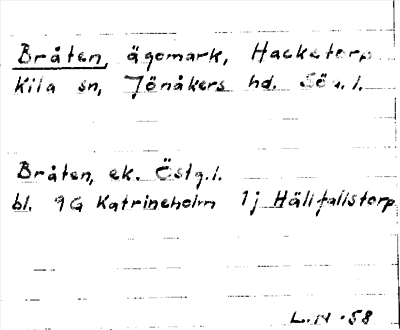 Bråten, ägomark, Hacketorp
Kila sn, Jönåkers hd. Söd. l.
Bråten, ek. Östg. l.
bl. 9G Katrineholm 1j Hällfallstorp
L.H -58